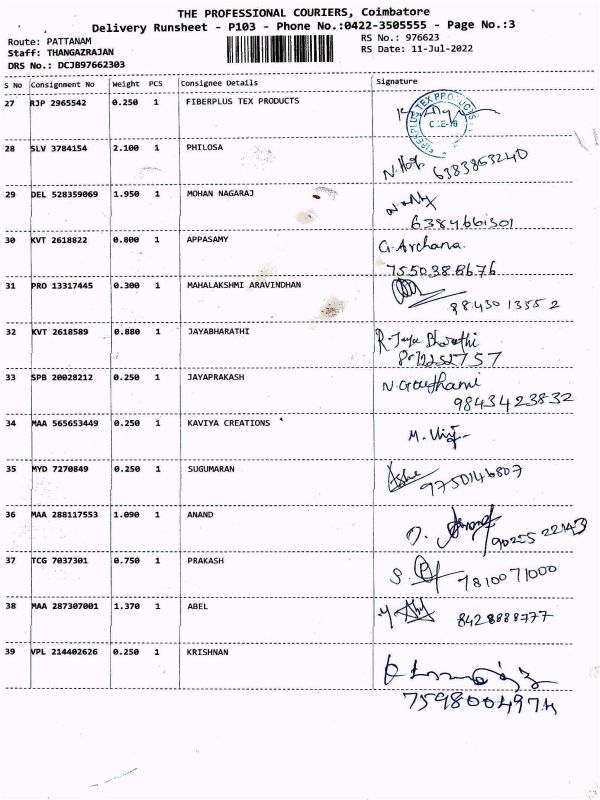 THE PROFESSIONAL COURIERS, Coimbatore
Delivery Runsheet - P103 - Phone No.:0422-3505555 - Page No.:3
Route: PATTANAM
RS No.: 976623
Staff: THANGAZRAJAN
RS Date: 11-Jul-2022
DRS No.: DCJB97662303
S No Consignment No Weight PCS Consignee Details Signature
27 RJP 2965542 0.250 1 FIBERPLUS TEX PRODUCTS
FIBERPLUS TEX PRODUCTS
28 SLV 3784154 2.100 1 PHILOSA
6383853240
29 DEL 528359069 1.950 1 MOHAN NAGARAJ
6384661301
30 KVT 2618822 0.800 1 APPASAMY G. Archana.
7550388676
31 PRO 13317445 0.300 1 MAHALAKSHMI ARAVINDHAN
98430 1355 2
32 KVT 2618589 0.880 1 JAYABHARATHI R. Jaya Bharathi
33 SPB 20028212 0.250 1 JAYAPRAKASH N. Gouthami
9843423832
34 MAA 565653449 0.250 1 KAVIYA CREATIONS
35 MYD 7270849 0.250 1 SUGUMARAN
9750146807
36 MAA 288117553 1.090 1 ANAND
90255 22143
37 TCG 7037301 0.750 1 PRAKASH
7810071000
38 MAA 287307001 1.370 1 ABEL
8428888777
39 VPL 214402626 0.250 1 KRISHNAN
7598004974